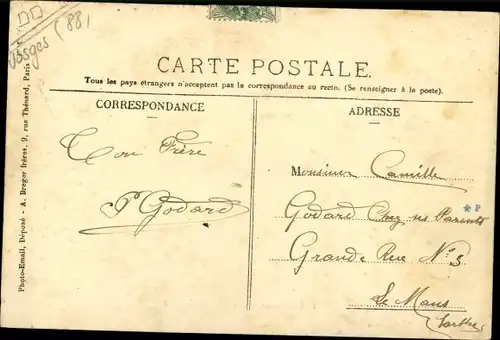 DD
Vosges (88)
CARTE POSTALE.
Tous les pays étrangers n'acceptent pas la correspondance au recto. (Se renseigner à la poste).
CORRESPONDANCE
Ton Frère
Godard
ADRESSE
Monsieur Camille
Godard Chez ses Parents
Grande Rue N° 3
Le Mans
Sarthe
Photo-Email, Déposé - A. Breger frères, 9, rue Thénard, Paris